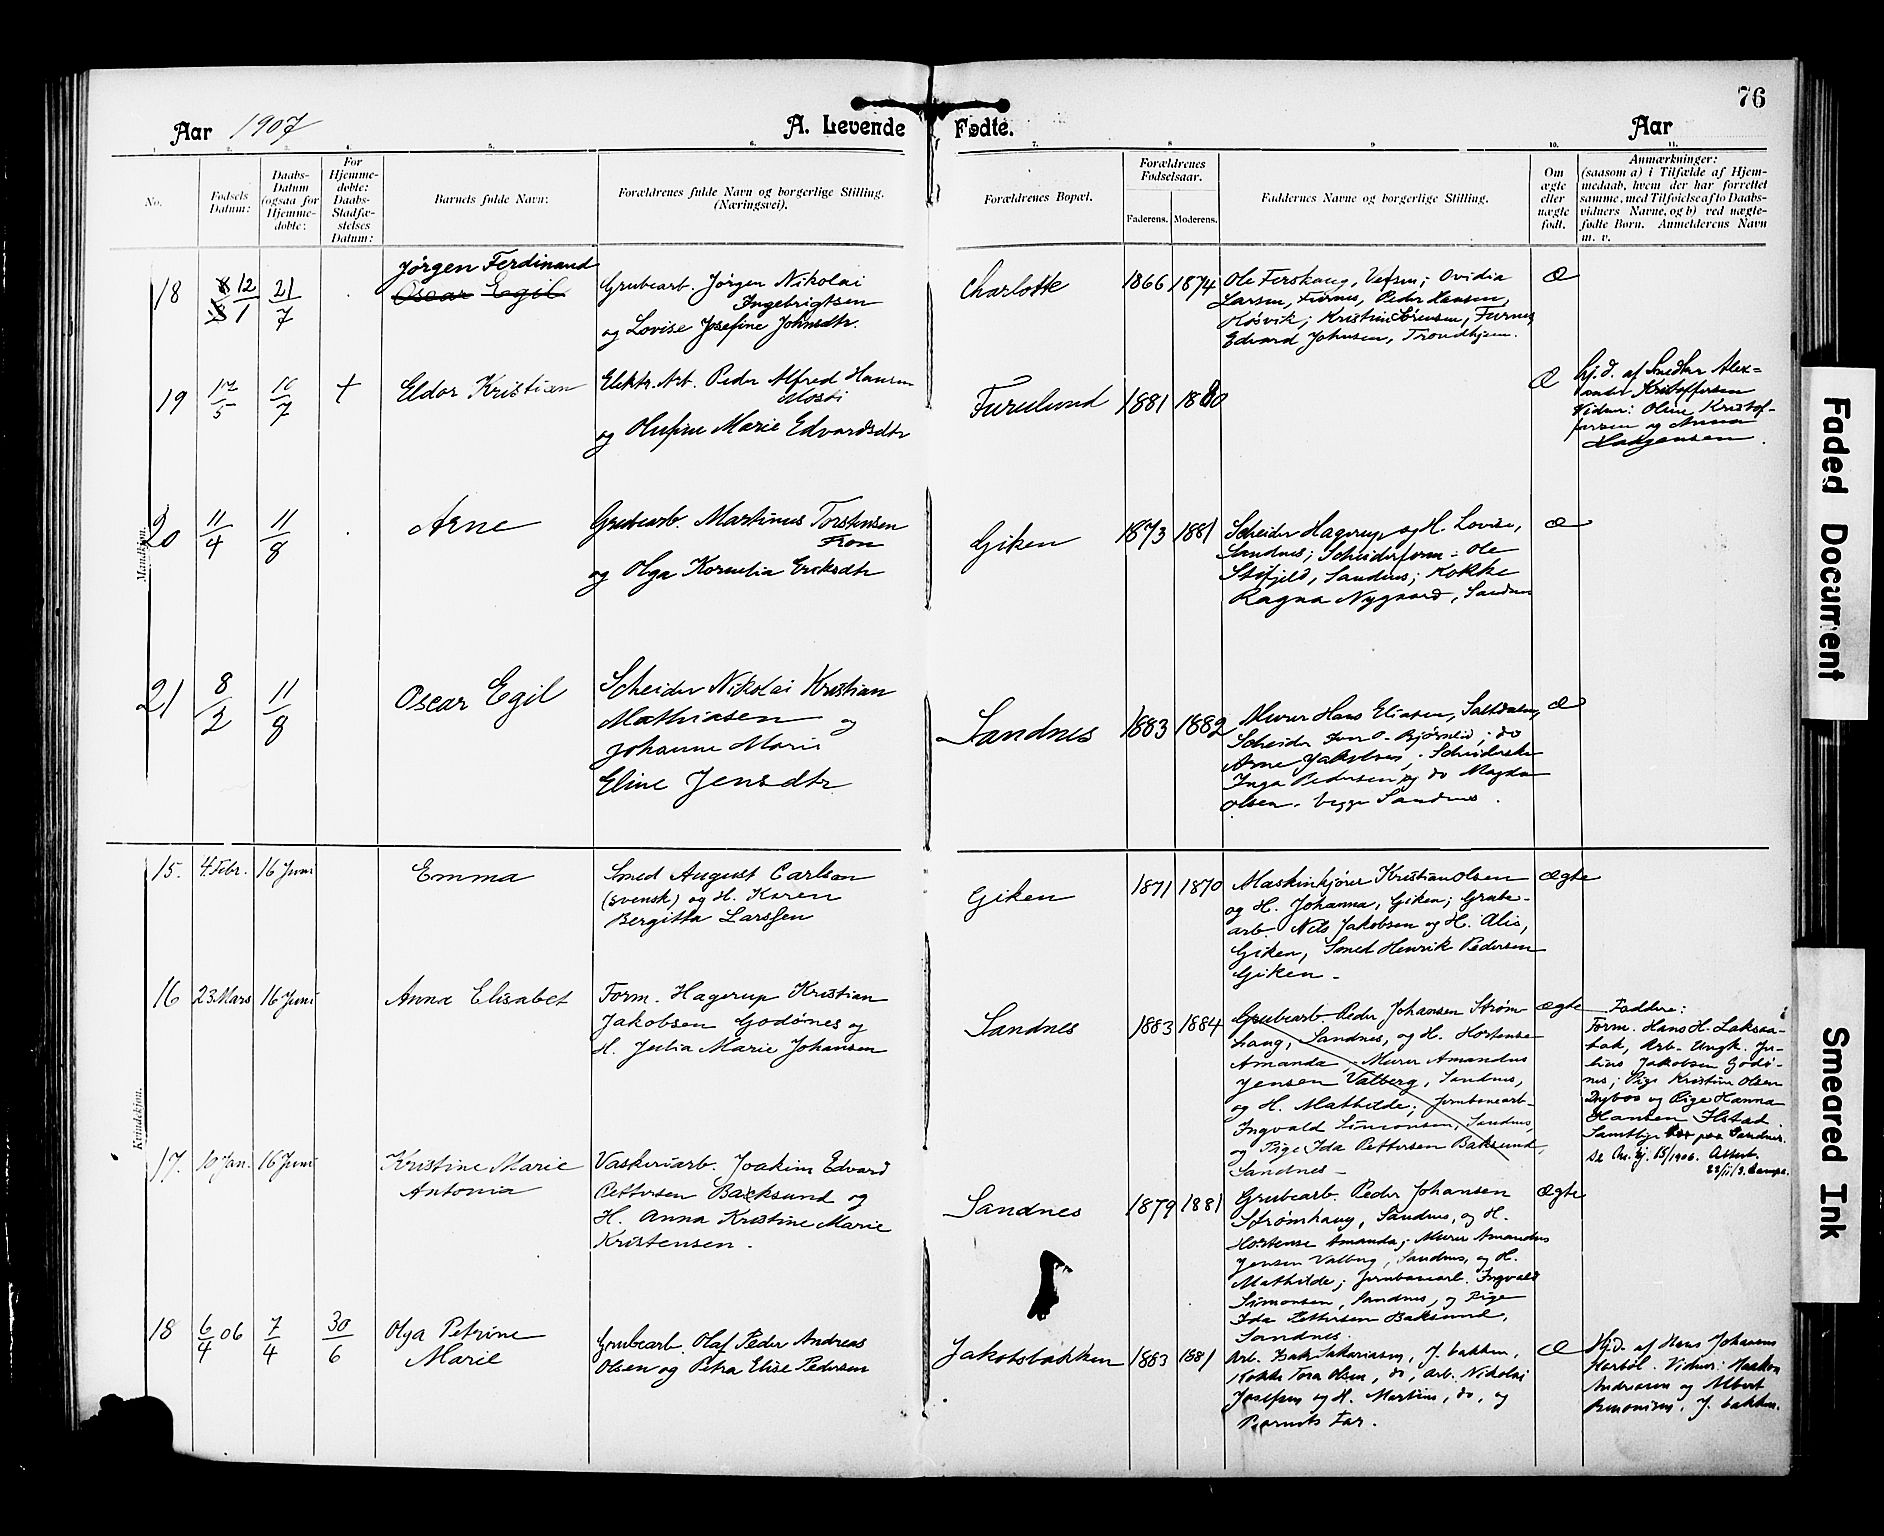 76
Aar 1907
A. Levende Fødte.
Aar
1. 2. 3. 4. 5. 6. 7. 8 9 10. 11.
No.
Fødsels
Datum:
Daabs-
Datum
(ogsaa for
Hjemme-
døbte:
For
Hjemme-
døbte:
Daabs-
Stadfæ-
stelses
Datum:
Barnets fulde Navn:
Forældrenes fulde Navn og borgerlige Stilling.
(Næringsvei).
Forældrenes Bopæl.
Forældrenes
Fødselsaar.
Faderens. Moderens.
Faddernes Navne og borgerlige Stilling.
Om
ægte
eller
uægte
født.
Anmærkninger:
(saasom a) i Tilfælde af Hjem-
medaab, hvem der har forrettet
samme, med Tilføielse af to Daabs-
vidners Navne, og b) ved uægte-
fødte Børn. Anmelderens Navn
m. v.
Mandkjøn.
18
12/1
21/7
Jørgen Ferdinand
Oscar Egil
Grubearb. Jørgen Nikolai
Ingebrigtsen
og Lovise Josefine Johnsdtr.
Charlotte
1866 1874
Ole Forshaug, Vefsen; Ovidia
Larsen, Furnes, Peder Hansen,
Kosvik; Kristine Sørensen, Furnes
Edvard Johnsen, Trondhjem.
Æ
19
17/5
10/7
+
Eldor Kristian
Elektr. Arb. Peder Alfred Hansen
Mosti
og Olufine Marie Edvardsdtr
Furulund
1881 1880
Æ
hj.d. af Smedlær Alex-
ander Kristoffersen
Vidner: Oline Kristof-
fersen og Anna
Haagensen.
20
11/4
11/8
Arne
Grubearb. Martinus Torstensen
Fron
og Olga Kornelia Eriksdtr
Giken
1873 1881
Scheider Hagerup og H. Lovise,
Sandnes; Scheiderform. Ole
Stifjeld, Sandnes; Kokke
Ragna Nygaard, Sandnes
Æ
21
8/2
11/8
Oscar Egil
Scheider Nikolai Kristian
Mathiasen og
Johanne Marie
Eline Jensdtr
Sandnes
1883 1882
Murer Hans Eliasen, Saltdalen,
Scheider Iver O. Bjørneid; do
Arne Jakobsen; Scheiderske
Inga Pedersen og do Magda
Olsen. begge Sandnes.
Æ
Kvindekjøn.
15.
4 Febr.
16 Juni
Emma
Smed August Carlson
(svensk) og H. Karen
Bergitta Larssen
Giken
1871 1870
Maskinkjører Kristian Olsen
og H. Johanna, Giken; Grube-
arb. Nils Jakobsen og H. Alis,
Giken, Smed Henrik Pedersen
Giken -
Ægte
16
23. Mars
16 Juni
Anna Elisabet
Form. Hagerup Kristian
Jakobsen Godønes og
H. Julia Marie Johansen
Sandnes
1883 1884
Grubearb Peder Johansen Strøm-
haug, Sandnes, og H. Hortense
Amanda, Murer Amandus
Jensen Valberg, Sandnes,
og H. Mathilde; Jernbanearb.
Ingvald Simonsen, Sandnes
og Pige Ida Pettersen Baksund,
Sandnes -
Ægte
Faddere:
Form. Hans H. Laksaa-
bak, Arb. Ungk. Ju-
lius Jakobsen Godø-
nes; Pige Kristine Olsen
og Pige Hanna
Hansen
Samtlige paa Sandnes.
17.
10 Jan.
16 Juni
Kristine Marie
Antonia
Vaskeriarb. Joakim Edvard
Pettersen Baksund og
H. Anna Kristine Marie
Kristensen.
Sandnes
1879 1881
Grubearb. Peder Johansen
Strømhaug, Sandnes, og H.
Hortense Amanda; Murer Amandus
Jensen Valberg, Sandnes, og H.
Mathilde; Jernbanearb. Ingvald
Simonsen, Sandnes, og Pige
Ida Pettersen Baksund,
Sandnes.
Ægte
18
6/4 06
7/4
30/6
Olga Petrine
Marie
Grubearb. Olaf Peder Andreas
Olsen og Petra Elise Pedersen
Jakobsbakken
1883 1881
Arb. Isak Sakariasen, J. bakken,
Kokke Tora Olsen, do, Arb. Nikolai
Josefsen og H. Martine, do, og
Barnets Far.
Æ
Hj.d. af Hans Johansens
Vidner: Haakon
Andreasen og Albert
J. bakken.
Faded Document
Smeared Ink